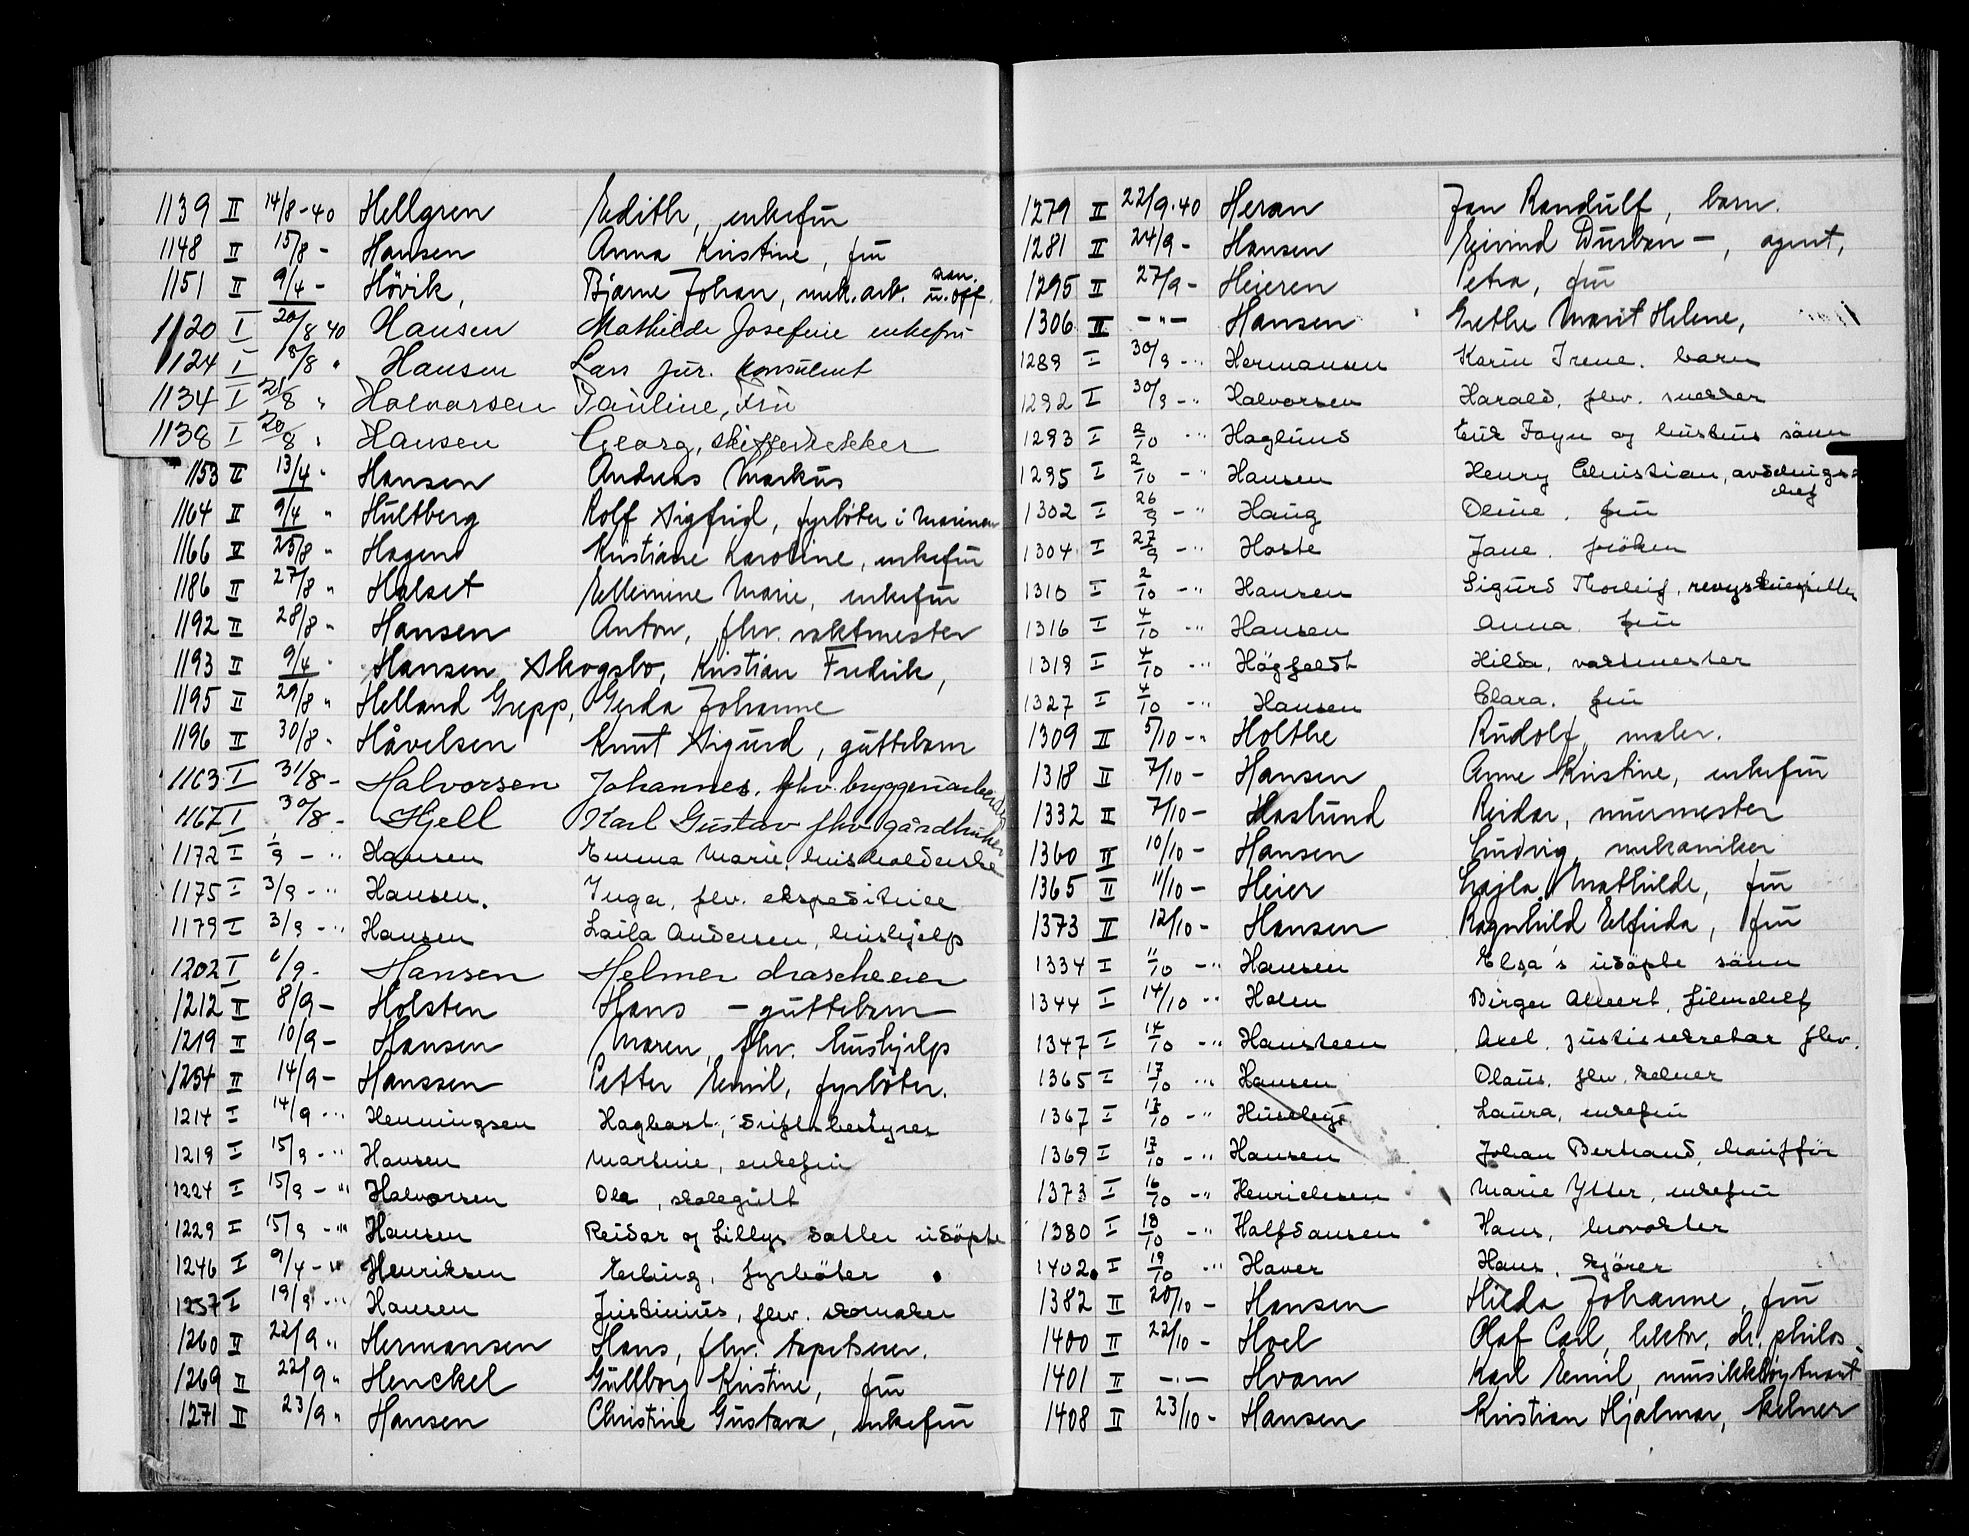 1139 II 14/8-40 Hellgren Edith, enkefru
1148 II 15/8 - Hansen Anna Kristine, fru
1151 II 9/4 - Høvik, Bjarne Johan, mek. arb. u.off.
1120 I 20/8 40 Hansen Mathilde Josefine enkefru
1124 I 18/8 " Hansen Lars jur. konsulent
1134 I 21/8 " Halvorsen Pauline, Fru
1138 I 20/8 " Hansen Georg, skiffertekker
1153 II 13/4 " Hansen Andreas Markus
1164 II 9/4 " Hultberg Rolf Sigfrid, fyrbøter i Marinen
1166 II 25/8 " Hagen Kristiane Karoline, enkefru
1186 II 27/8 " Halset Ellemine Marie, enkefru
1192 II 28/8 " Hansen Anton, fhv. vaktmester
1193 II 9/4 " Hansen Skogsbo, Kristian Fredrik,
1195 II 29/8 " Helland Grepp, Gerda Johanne
1196 II 30/8 " Håvelsen Knut Sigurd, guttebarn
1163 I 31/8 - Halvorsen Johannes, fhv. bryggeriarbeider
1167 I 30/8 - Hjell Karl Gustav fhv gårdbruker
1172 I 1/9 - " Hansen Emma Marie, husholderske
1175 I 3/9 - " Hansen. Inga, fhv. ekspeditrice
1179 I 3/9 - " Hansen Laila Andersen, hushjelp
1202 I 6/9 - Hansen Helmer drascheeier
1212 II 8/9 - Holsten Hans - guttebarn
1219 II 10/9 - Hansen Maren, fhv. hushjelp
1254 II 14/9 - Hanssen Petter Emil, fyrbøter.
1214 I 14/9 - " Henningsen Hagbart, driftsbestyrer
1219 I 15/9 - " Hansen Martine, enkefru
1224 I 15/9 - " Halvorsen Ole, skolegutt
1229 I 15/9 - " Hansen Reidar og Lillys datter udøpte
1246 I 9/4 - " Henriksen Erling, fyrbøter
1257 I 19/9 - " Hansen Justinius, fhv. skomaker
1260 II 22/9 " Hermansen Hans, fhv. tapetserer.
1269 II 22/9 " Henckel Gullborg Kristine, fru
1271 II 23/9 " Hansen Christine Gustava, enkefru
1279 II 22/9-40 Heran Jan Randulf, barn.
1281 II 24/9 - Hansen Eivind Durban -, agent,
1295 II 27/9 - Heieren Petra, fru
1306 II - " - Hansen Grethe Marit Helene,
1289 I 30/9 - " Hermansen Karin Irene. barn
1292 I 30/9 - " Halvorsen Harald, fhv. snekker
1293 I 2/10 - " Haglund og hustrus sønn
1295 I 2/10 - " Hansen Henry Christian, avdelingschef
1302 I 26/9 - " Haug Oline, fru
1304 I 27/9 - " Haste Jane. frøken
1310 I 2/10 - " Hansen Sigurd Thorleif, revyskuespiller
1316 I 4/10 - " Hansen Anna. fru
1319 I 4/10 - " Högfeldt Hilda, vaktmester
1327 I 4/10 - " Hansen Clara. fru
1309 II 5/10 - " Holthe Rudolf, maler.
1318 II 7/10 - Hansen Anne Kristine, enkefru
1332 II 7/10 - Haslund Reidar, murmester
1360 II 10/10 - Hansen Ludvig, mekaniker
1365 II 11/10 - Heier Lajla Mathilde, fru
1373 II 12/10 - Hansen Ragnhild Elfrida, fru
1334 I 11/10 - " Hansen Elsa's udøpte sønn
1344 I 14/10 - " Halen Birger Albert, filmchef
1347 I 14/10 - " Hansteen Axel, justissekretær fhv.
1365 I 17/10 - " Hansen Olaus, fhv. kelner
1367 I 17/10 - " Huseby Laura, enkefru
1369 I 17/10 - " Hansen Johan Bertrand, chauffør
1373 I 16/10 - " Henrichsen Marie Ytter, enkefru
1380 I 18/10 - " Halfdansen Hans, brovokter
1402 I 19/10 - " Haver Hans, kjører
1382 II 20/10 - Hansen Hilda Johanne, fru
1400 II 22/10 - Hoel Olaf Carl, lektor, dr. philos
1401 II - " - Hvam Karl Emil, musikkløytnant
1408 II 23/10 - Hansen Kristian Hjalmar, kelner